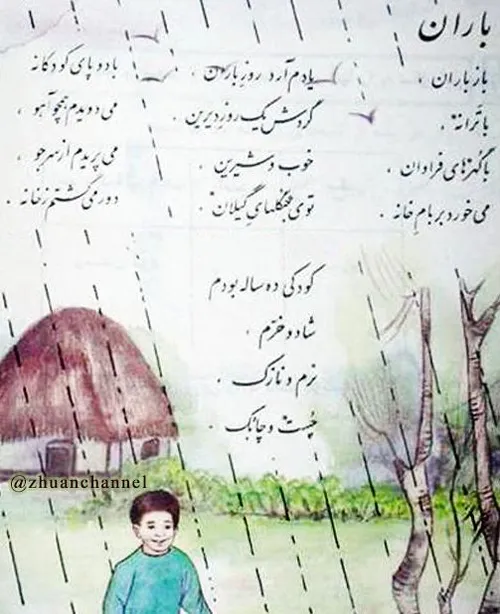 باران
باز باران ،
با ترانه ،
با گهرهای فراوان
می خورد بر بام خانه .
یادم آرد روز باران ،
گردش یک روز دیرین ،
خوب و شیرین
توی جنگلهای گیلان .
کودکی ده ساله بودم
شاد و خرّم ،
نرم و نازک .
چُست و چابک .
با دو پای کودکانه
می دویدم همچو آهو ،
می پریدم از سر جو ،
دور می گشتم ز خانه .
@zhuanchannel